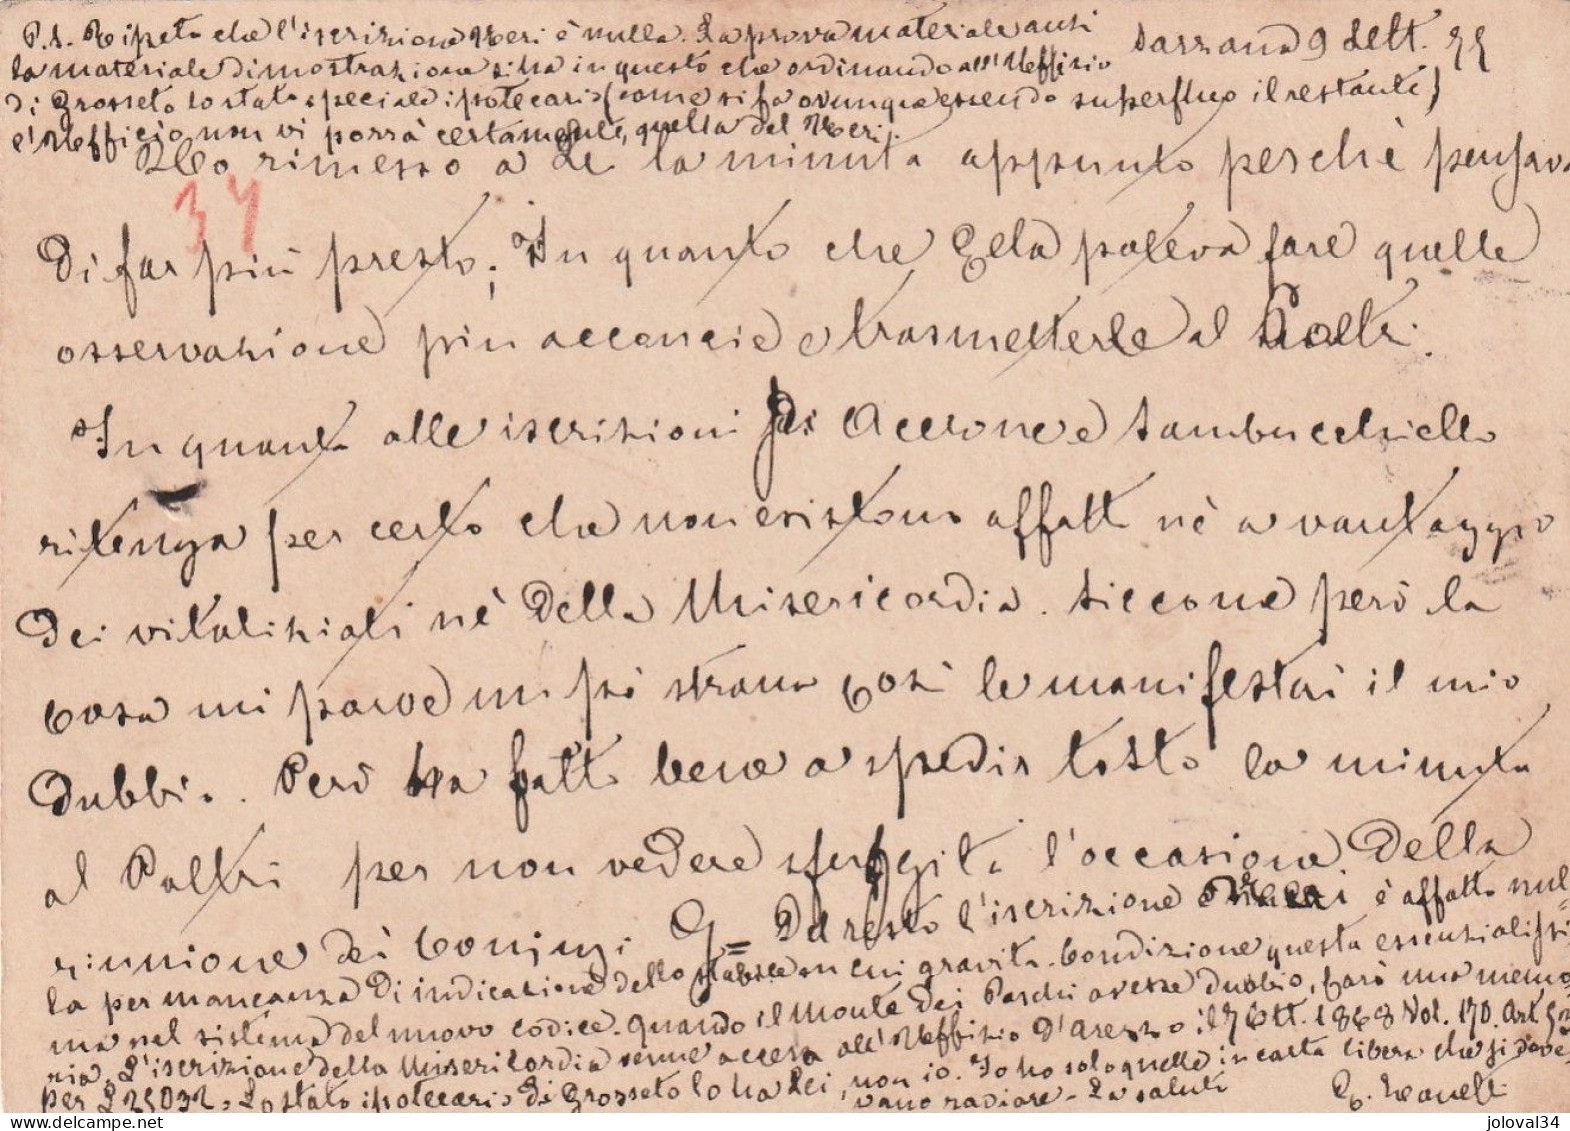 P.S. Ripeto che l'iscrizione Neri è nulla. La prova materiale anzi
Sarzana 9 Sett.
la materiale dimostrazione si ha in questo che ordinando all'Uffizio
di Grosseto lo stato speciale ipotecario (come si fa ovunque essendo superfluo il restante)
l'Uffizio non vi porrà certamente, quella del Neri.
Ho rimesso a Lei la minuta appunto perchè pensava
34
di far più presto; In quanto che Ella poteva fare quelle
osservazione più acconcie e trasmetterle al Poltri.
In quanto alle iscrizioni Acerone e Sambucelviello
ritenga per certo che non esistono affatto nè a vantaggio
dei vitalizиati nè della Misericordia. Siccome però la
cosa mi parve un pò strana così le manifestai il mio
dubbio. Però ha fatto bene a spedir tosto la minuta
al Poltri per non vedere sfuggita l'occasione della
riunione dei Coniugi. Del resto l'iscrizione Neri è affatto nul=
la per mancanza di indicazione dello stabile su cui gravita. Condizione questa essenzialissi
ma nel sistema del nuovo codice. Quando il Monte dei Paschi avesse dubbio, farò una memo
ria. L'iscrizione della Misericordia venne accesa all'Uffizio d'Arezzo il 7 Ott. 1868 Vol. 170. Art.
per £ 25032. Lo stato ipotecario di Grosseto lo ha Lei, non io. Io ho solo quello in carta libera che si dove
vano radiare. La saluto
joloval34